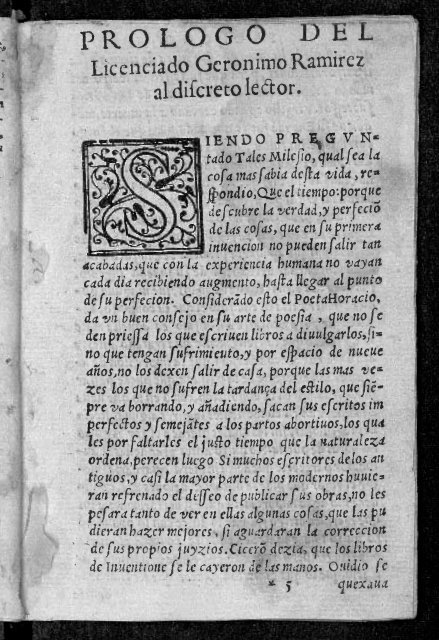 PROLOGO DEL
Licenciado Geronimo Ramirez
al discreto lector.
SIENDO PREGVN-
tado Tales Milesio, qual sea la
cosa mas sabia desta vida, re-
spondio, Que el tiempo: porque
descubre la verdad, y perfeciõ
de las cosas, que en su primera
inuencion no pueden salir tan
acabadas, que con la experiencia humana no vayan
cada dia recibiendo augmento, hasta llegar al punto
de su perfecion. Considerãdo esto el Poeta Horacio,
da vn buen consejo en su arte de poesia, que no se
den priessa los que escriuen libros a diuulgarlos, si-
no que tengan sufrimiento, y por espacio de nueue
años, no los dexen salir de casa, porque las mas ve-
zes los que no sufren la tardança del estilo, que siẽ-
pre va borrando, y añadiendo, sacan sus escritos im
perfectos y semejãtes a los partos abortiuos, los qua
les por faltarles el justo tiempo que la naturaleza
ordena, perecen luego Si muchos escritores de los an
tiguos, y casi la mayor parte de los modernos huuie-
ran refrenado el desseo de publicar sus obras, no les
pesara tanto de ver en ellas algunas cosas, que las pu
dieran hazer mejores, si aguardaran la correccion
de sus propios juyzios. Cicerõ dezia, que los libros
de Inuentione se le cayeron de las manos. Ouidio se
* 5 quexaua